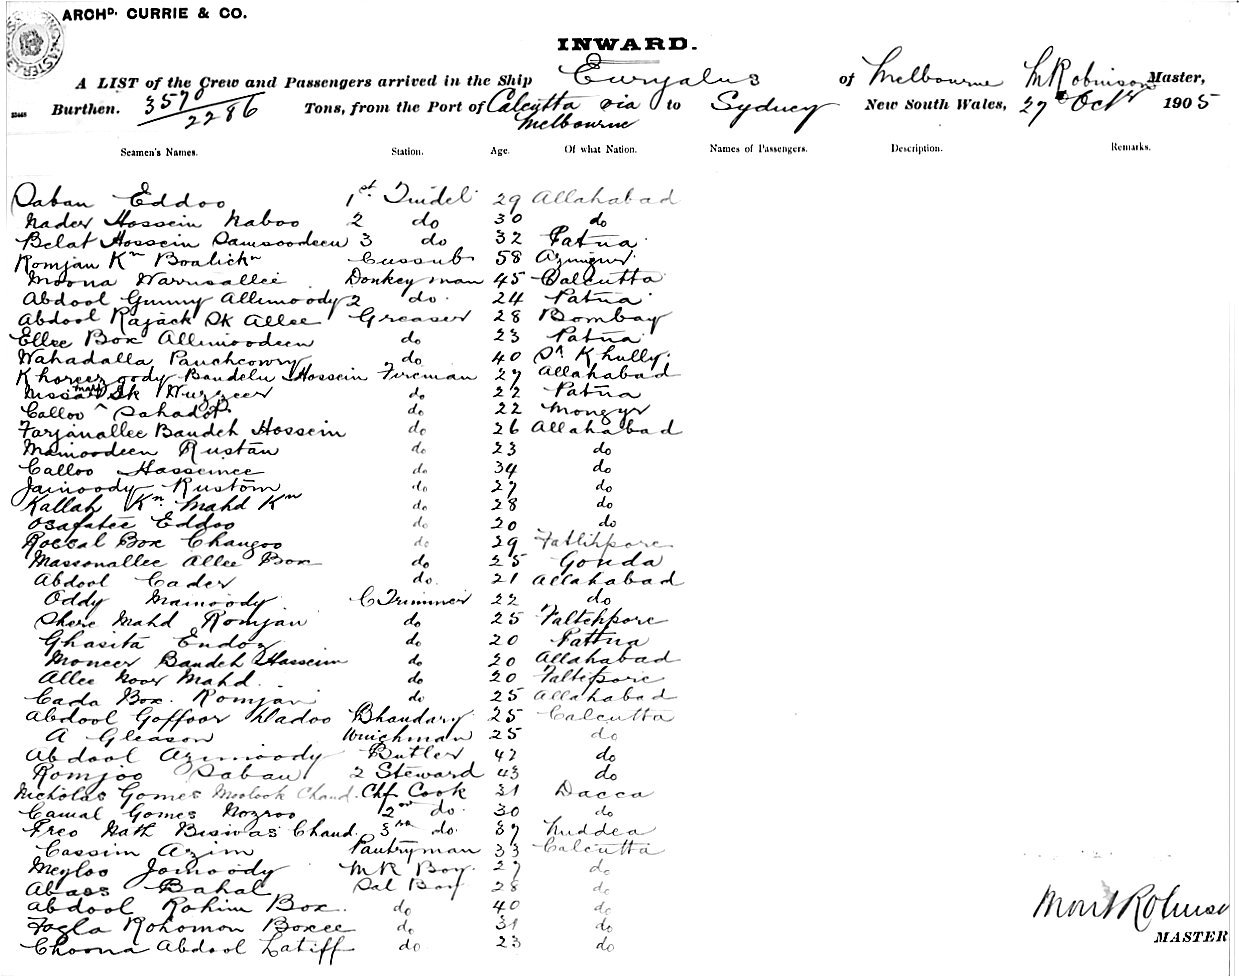 ARCHD. CURRIE & CO.
INWARD.
A LIST of the Crew and Passengers arrived in the Ship Euryalus of Melbourne M Robinson Master,
Burthen. 3570 Tons, from the Port of Calcutta via to Sydney New South Wales, 27 Octr 1905
2286 Melbourne
Seamen's Names. Station. Age. Of what Nation. Names of Passengers. Description. Remarks.
Saban Eddoo 1st Tindel 29 Allahabad
Nader Hossein Naboo 2 do 30 do
Belat Hossein Samsoodeen 3 do 32 Patna
Romjan Kn Boalickn Cussub 58
Moona Warrisallee Donkeyman 45 Calcutta
Abdool Gunny Allimoody 2 do 24 Patna
Abdool Rajack Sk Allee Greaser 28 Bombay
Ellee Box Allimoodeen do 23 Patna
Wahadalla Panchcowry do 40 Khully
Bandeh Hossein Fireman 27 Allahabad
Sk Wuzzeer do 22 Patna
Calloo Sahadot do 22 Mongyr
Farjanallee Bandeh Hossein do 26 Allahabad
Mamoodeen Rustan do 23 do
Calloo Hasseinee do 34 do
Jainoody Rustom do 27 do
Kallah Kn Mahd Kn do 28 do
Osafatee Eddoo do 20 do
Roccal Box Changoo do 29 Fattihpore
Massonallee Allee Box do 25 Gonda
Abdool Cader do 21 Allahabad
Oddy Mamoody C Trimmer 22 do
Shere Mahd Romjan do 25 Fattehpore
Ghasita Endoz do 20 Pattna
Moneer Bandeh Hassein do 20 Allahabad
Allee Noor Mahd. do 20 Faltepore
Cada Box. Romjan do 25 Allahabad
Abdool Goffoor Dadoo Bhandary 25 Calcutta
A Gleason Winchman 25 do
Abdool Azimoody Butler 42 do
Romjoo Saban 2 Steward 43 do
Nicholas Gomes Moolook Chand. Chf Cook 31 Dacca
Camal Gomes Nozroo 2nd do. 30 do
Freo Nath Biswas Chand. 3rd do. 37 Nuddea
Cassim Azim Pantryman 33 Calcutta
Meyloo Jomoody M R Boy 27 do
Abaos Bahal Sal Boy 28 do
Abdool Rohim Box. do 40 do
Fogla Rohomon Boxee do 31 do
Choona Abdool Latiff do 23 do
Mont Robinson
MASTER